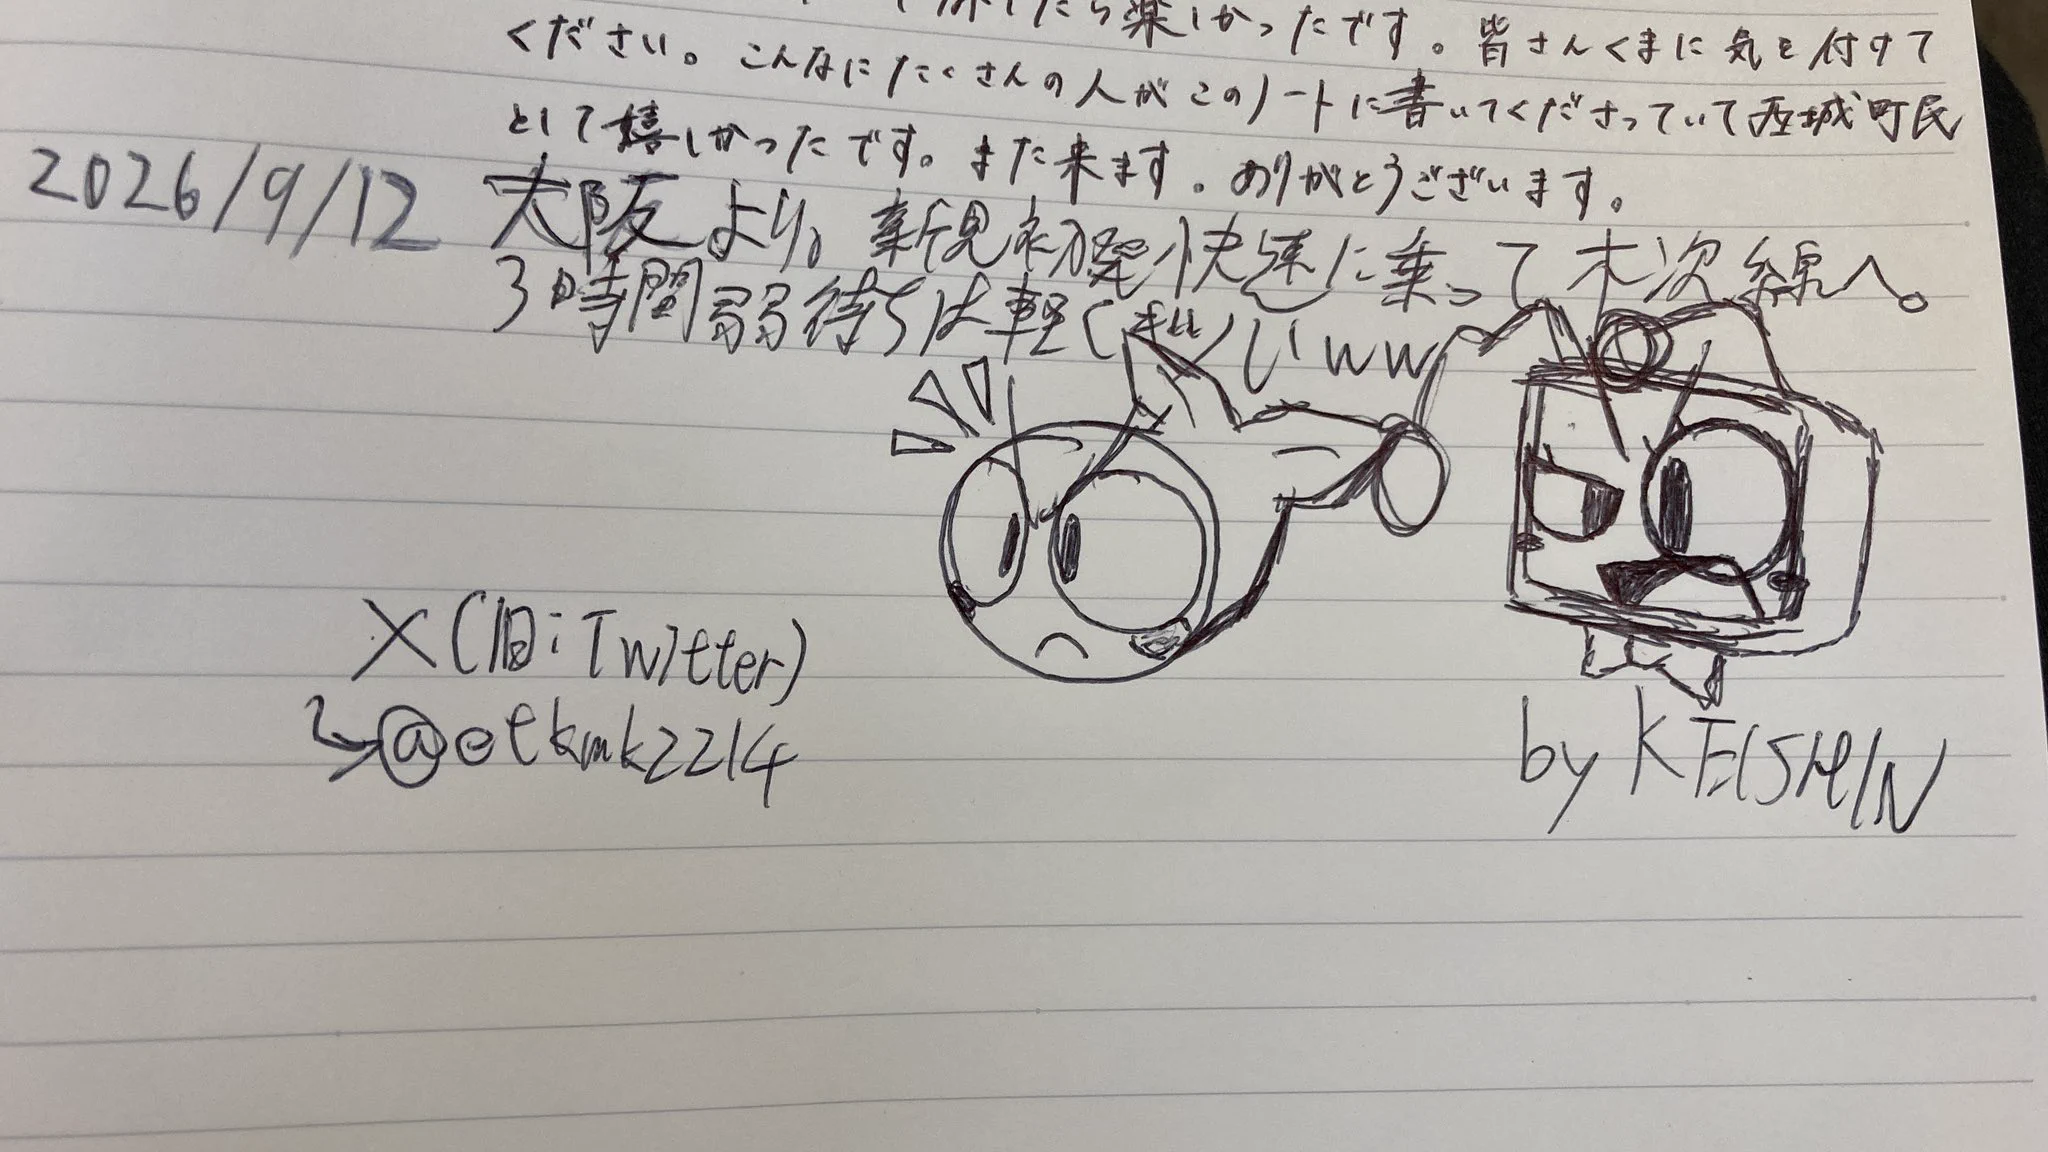 たら楽しかったです。皆さんくまに気を付けて
ください。こんなにたくさんの人がこのノートに書いてくださっていて庄城町民
として嬉しかったです。また来ます。ありがとうございます。
2026/9/12 大阪より。新見初発快速に乗って木次線へ。
3時間弱待ちは軽くぎんじいww
X(旧:Twitter)
@otkmk2214
by KEISHIN